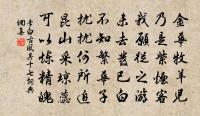 金華牧羊兒
乃是紫煙客
我願從之游
未去髮已白
不知繁華子
擾擾何所迫
昆山採瓊蕊
可以煉精魄
李白古風其十七詞典
網集